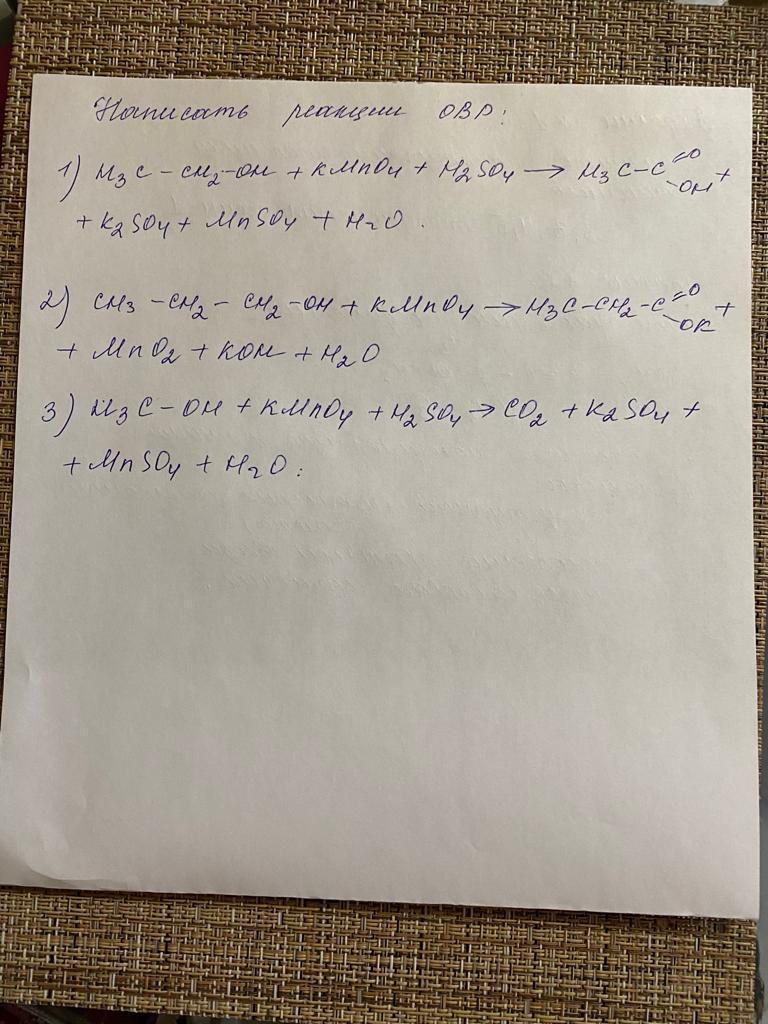 Написать реакции ОВР:
1) H₃C – CH₂–OH + KMnO₄ + H₂SO₄ → H₃C–C =O –OH +
+ K₂SO₄ + MnSO₄ + H₂O .
2) CH₃ – CH₂ – CH₂ –OH + KMnO₄ → H₃C–CH₂–C =O –OK +
+ MnO₂ + KOH + H₂O
3) H₃C – OH + KMnO₄ + H₂SO₄ → CO₂ + K₂SO₄ +
+ MnSO₄ + H₂O :